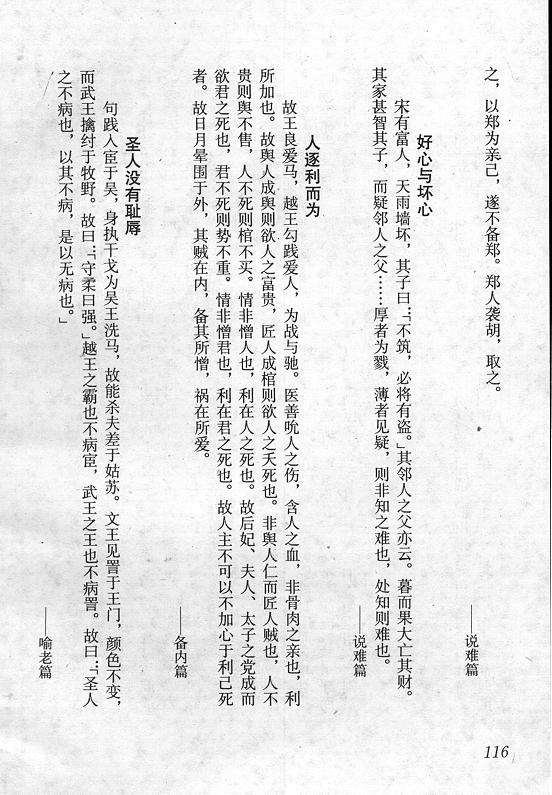 之，以郑为亲己，遂不备郑。郑人袭胡，取之。
——说难篇
好心与坏心
宋有富人，天雨墙坏，其子曰：「不筑，必将有盗。」其邻人之父亦云。暮而果大亡其财。
其家甚智其子，而疑邻人之父……厚者为戮，薄者见疑，则非知之难也，处知则难也。
——说难篇
人逐利而为
故王良爱马，越王勾践爱人，为战与驰。医善吮人之伤，含人之血，非骨肉之亲也，利
所加也。故舆人成舆则欲人之富贵，匠人成棺则欲人之夭死也。非舆人仁而匠人贼也，人不
贵则舆不售，人不死则棺不买。情非憎人也，利在人之死也。故后妃、夫人、太子之党成而
欲君之死也，君不死则势不重。情非憎君也，利在君之死也。故人主不可以不加心于利己死
者。故日月晕围于外，其贼在内，备其所憎，祸在所爱。
——备内篇
圣人没有耻辱
句践入宦于吴，身执干戈为吴王洗马，故能杀夫差于姑苏。文王见詈于王门，颜色不变，
而武王擒纣于牧野。故曰：「守柔曰强。」越王之霸也不病宦，武王之王也不病詈。故曰：「圣人
之不病也，以其不病，是以无病也。」
——喻老篇
116